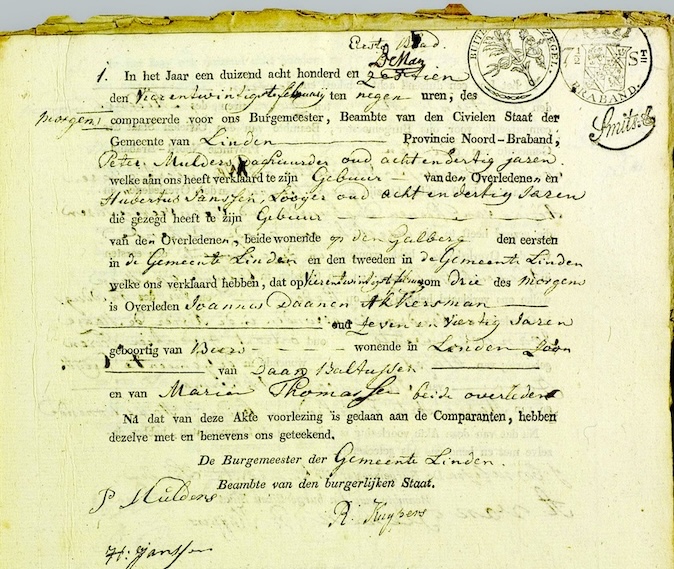 Eerste Blad.
BUITEN ZEGEL.
7½ S
BRABAND.
Smits
1. In het Jaar een duizend acht honderd en zestien
den Vierentwintigste february ten negen uren, des
morgens
compareerde voor ons Burgemeester, Beambte van den Civielen Staat der
Gemeente van Linden Provincie Noord-Braband,
Peter Mulders daghuurder oud acht en dertig jaren
welke aan ons heeft verklaard te zijn Gebuur van den Overledenen en
Hubertus Janssen, Looyer oud acht en dertig Jaren
die gezegd heeft te zijn Gebuur
van den Overledenen, beide wonende op den Galberg den eersten
in de Gemeente Linden en den tweeden in de Gemeente Linden
welke ons verklaard hebben, dat op Vierentwintigste februa om drie des morgens
is Overleden Joannes Daanen Akkersman
oud Zeven en Viertig Jaren
geboortig van Beers wonende in Linden Zoon
van Daan Baltussen
en van Maria Thomasse beide overleden
Na dat van deze Akte voorlezing is gedaan aan de Comparanten, hebben
dezelve met en benevens ons geteekend.
De Burgemeester der Gemeente Linden.
Beambte van den burgerlijken Staat.
P Mulders
R. Kuypers
H: Janssen